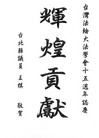 台灣法論大法學會十五週年誌慶
輝煌貢獻
台北縣議員 王 敬賀